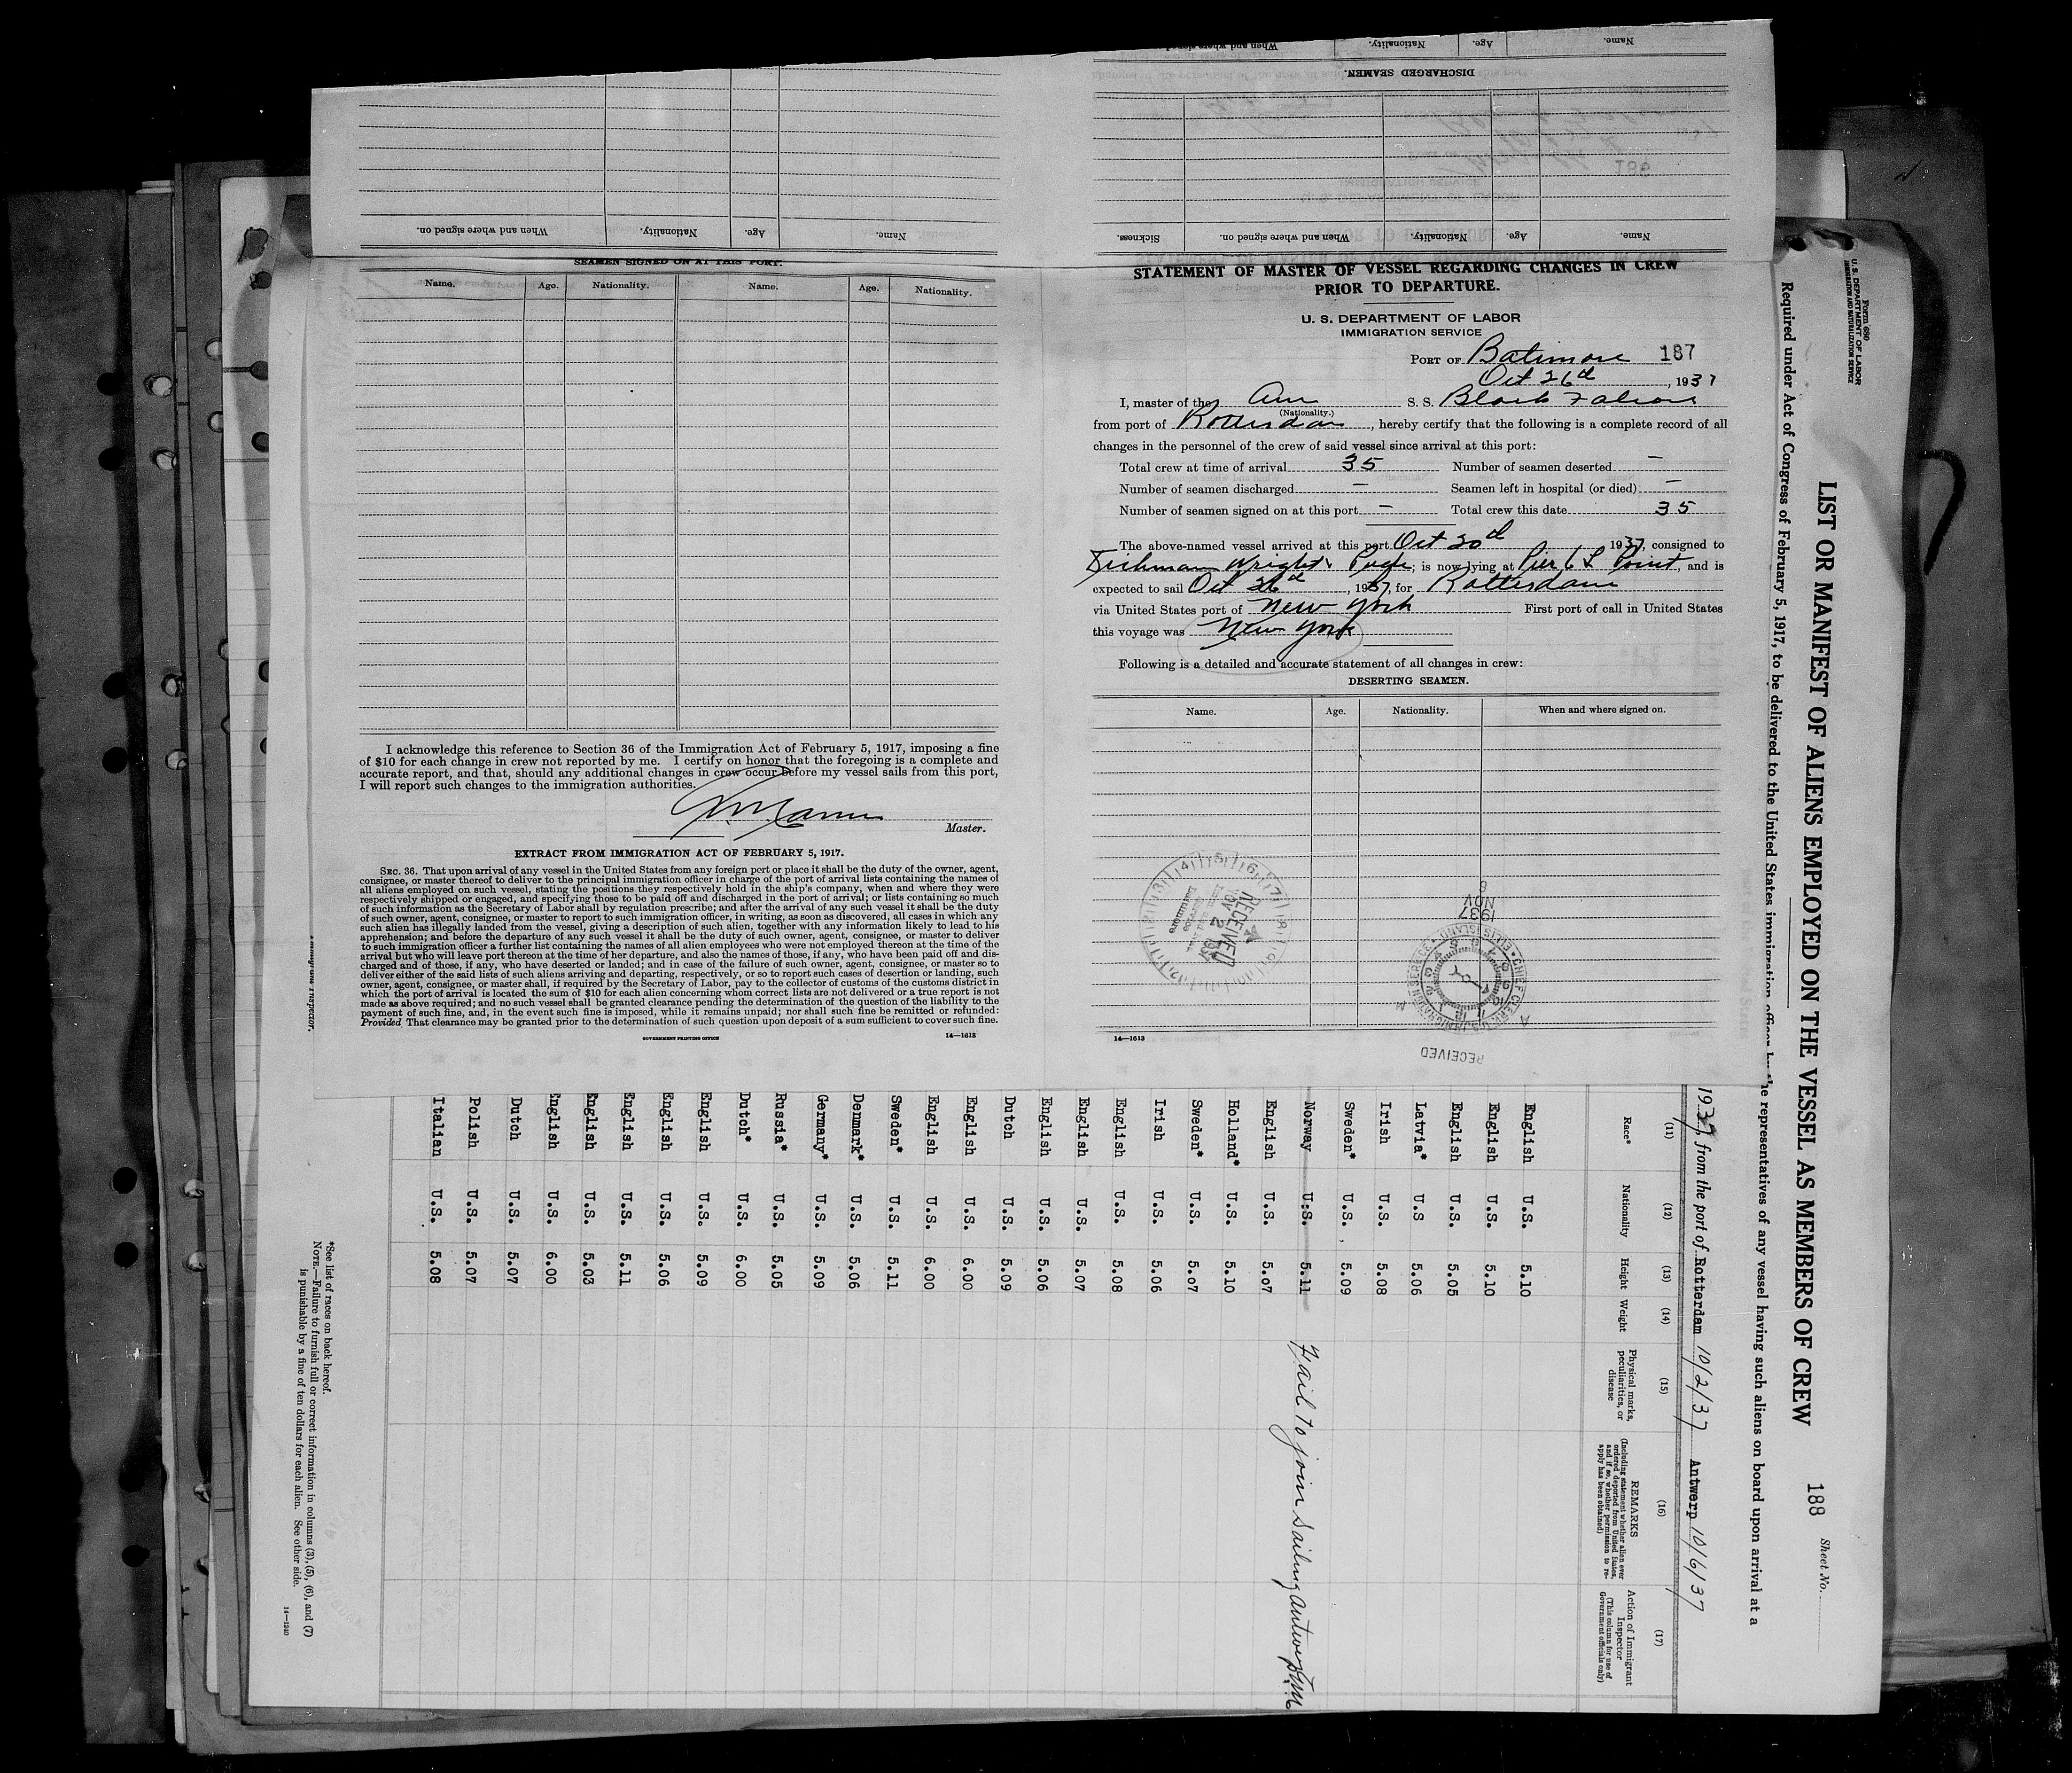 Name. Age. Nationality. When and where signed on.
DISCHARGED SEAMEN.
Name. Age. Nationality. When and where signed on. Sickness.
Name. Age. Nationality. When and where signed on.
SEAMEN SIGNED ON AT THIS PORT.
Name. Age. Nationality. Name. Age. Nationality.
I acknowledge this reference to Section 36 of the Immigration Act of February 5, 1917, imposing a fine
of $10 for each change in crew not reported by me. I certify on honor that the foregoing is a complete and
accurate report, and that, should any additional changes in crew occur before my vessel sails from this port,
I will report such changes to the immigration authorities.
Master.
EXTRACT FROM IMMIGRATION ACT OF FEBRUARY 5, 1917.
SEC. 36. That upon arrival of any vessel in the United States from any foreign port or place it shall be the duty of the owner, agent,
consignee, or master thereof to deliver to the principal immigration officer in charge of the port of arrival lists containing the names of
all aliens employed on such vessel, stating the positions they respectively hold in the ship's company, when and where they were
respectively shipped or engaged, and specifying those to be paid off and discharged in the port of arrival; or lists containing so much
of such information as the Secretary of Labor shall by regulation prescribe; and after the arrival of any such vessel it shall be the duty
of such owner, agent, consignee, or master to report to such immigration officer, in writing, as soon as discovered, all cases in which any
such alien has illegally landed from the vessel, giving a description of such alien, together with any information likely to lead to his
apprehension; and before the departure of any such vessel it shall be the duty of such owner, agent, consignee, or master to deliver
to such immigration officer a further list containing the names of all alien employees who were not employed thereon at the time of the
arrival but who will leave port thereon at the time of her departure, and also the names of those, if any, who have been paid off and dis-
charged and of those, if any, who have deserted or landed; and in case of the failure of such owner, agent, consignee, or master so to
deliver either of the said lists of such aliens arriving and departing, respectively, or so to report such cases of desertion or landing, such
owner, agent, consignee, or master shall, if required by the Secretary of Labor, pay to the collector of customs of the customs district in
which the port of arrival is located the sum of $10 for each alien concerning whom correct lists are not delivered or a true report is not
made as above required; and no such vessel shall be granted clearance pending the determination of the question of the liability to the
payment of such fine, and, in the event such fine is imposed, while it remains unpaid; nor shall such fine be remitted or refunded:
Provided That clearance may be granted prior to the determination of such question upon deposit of a sum sufficient to cover such fine.
GOVERNMENT PRINTING OFFICE 14—1613
STATEMENT OF MASTER OF VESSEL REGARDING CHANGES IN CREW
PRIOR TO DEPARTURE.
U. S. DEPARTMENT OF LABOR
IMMIGRATION SERVICE
PORT OF Batimore 187
Oct 26th, 1937
I, master of the Am S. S. Black Falcon
(Nationality.)
from port of Rotterdam, hereby certify that the following is a complete record of all
changes in the personnel of the crew of said vessel since arrival at this port:
Total crew at time of arrival 35 Number of seamen deserted —
Number of seamen discharged — Seamen left in hospital (or died) —
Number of seamen signed on at this port — Total crew this date 35
The above-named vessel arrived at this port Oct 20th 1937, consigned to
Wright & Pugh; is now lying at Pier 6 L Point, and is
expected to sail Oct 26th, 1937, for Rotterdam
via United States port of New York First port of call in United States
this voyage was New York
Following is a detailed and accurate statement of all changes in crew:
DESERTING SEAMEN.
Name. Age. Nationality. When and where signed on.
RECEIVED
NOV 2 1937
Baltimore
1937
NOV
6
CHIEF CLERK U.S. IMMIGRATION SERVICE ELLIS ISLAND
A M
RECEIVED
14—1613
Form 680
U. S. DEPARTMENT OF LABOR
IMMIGRATION AND NATURALIZATION SERVICE
LIST OR MANIFEST OF ALIENS EMPLOYED ON THE VESSEL AS MEMBERS OF CREW 188 Sheet No.
Required under Act of Congress of February 5, 1917, to be delivered to the United States immigration officer by the representatives of any vessel having such aliens on board upon arrival at a
1937, from the port of Rotterdam 10/2/37 Antwerp 10/6/37
(11) (12) (13) (14) (15) (16) (17)
Race* Nationality Height Weight Physical marks, peculiarities, or disease REMARKS (Including statement whether alien ever ordered deported from United States, and if so, whether permission to reapply has been obtained) Action of Immigrant Inspector (This column for use of Government officials only)
English U.S. 5.10
English U.S. 5.10
English U.S. 5.05
Latvia* U.S 5.06
Irish U.S. 5.08
Sweden* U.S. 5.09
Norway U.S. 5.11 Fail to join Sailing Antwerp
English U.S. 5.07
Holland* U.S. 5.10
Sweden* U.S. 5.07
Irish U.S. 5.06
English U.S. 5.08
English U.S. 5.07
English U.S. 5.06
Dutch U.S. 5.09
English U.S. 6.00
English U.S. 6.00
Sweden* U.S. 5.11
Denmark* U.S. 5.06
Germany* U.S. 5.09
Russia* U.S. 5.05
Dutch* U.S. 6.00
English U.S. 5.09
English U.S. 5.06
English U.S. 5.11
English U.S. 5.03
English U.S. 6.00
Dutch U.S. 5.07
Polish U.S. 5.07
Italian U.S. 5.08
*See list of races on back hereof.
NOTE.—Failure to furnish full or correct information in columns (3), (5), (6), and (7)
is punishable by a fine of ten dollars for each alien. See other side.
14—1240